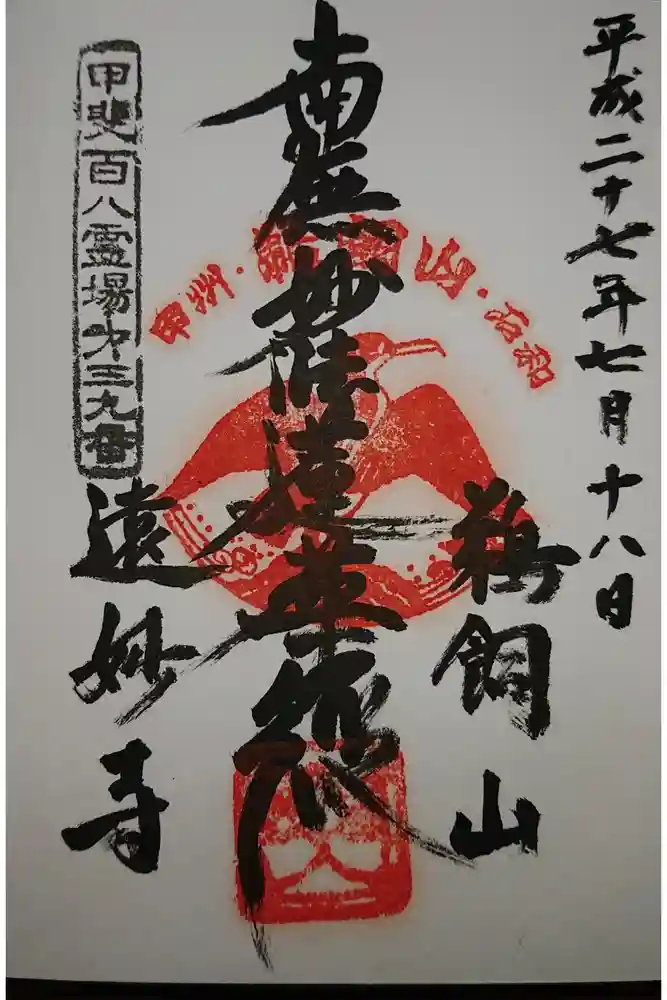 平成二十七年七月十八日
鵜飼山
甲州・鵜飼山・石和
南無妙法蓮華経
甲斐百八霊場第三九番
遠妙寺